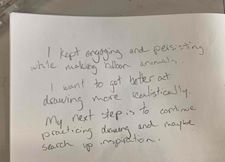 I kept engaging and persisting
while making ribbon animals.
I want to get better at
drawing more realistically.
My next step is to continue
practicing drawing and maybe
search up inspiration.